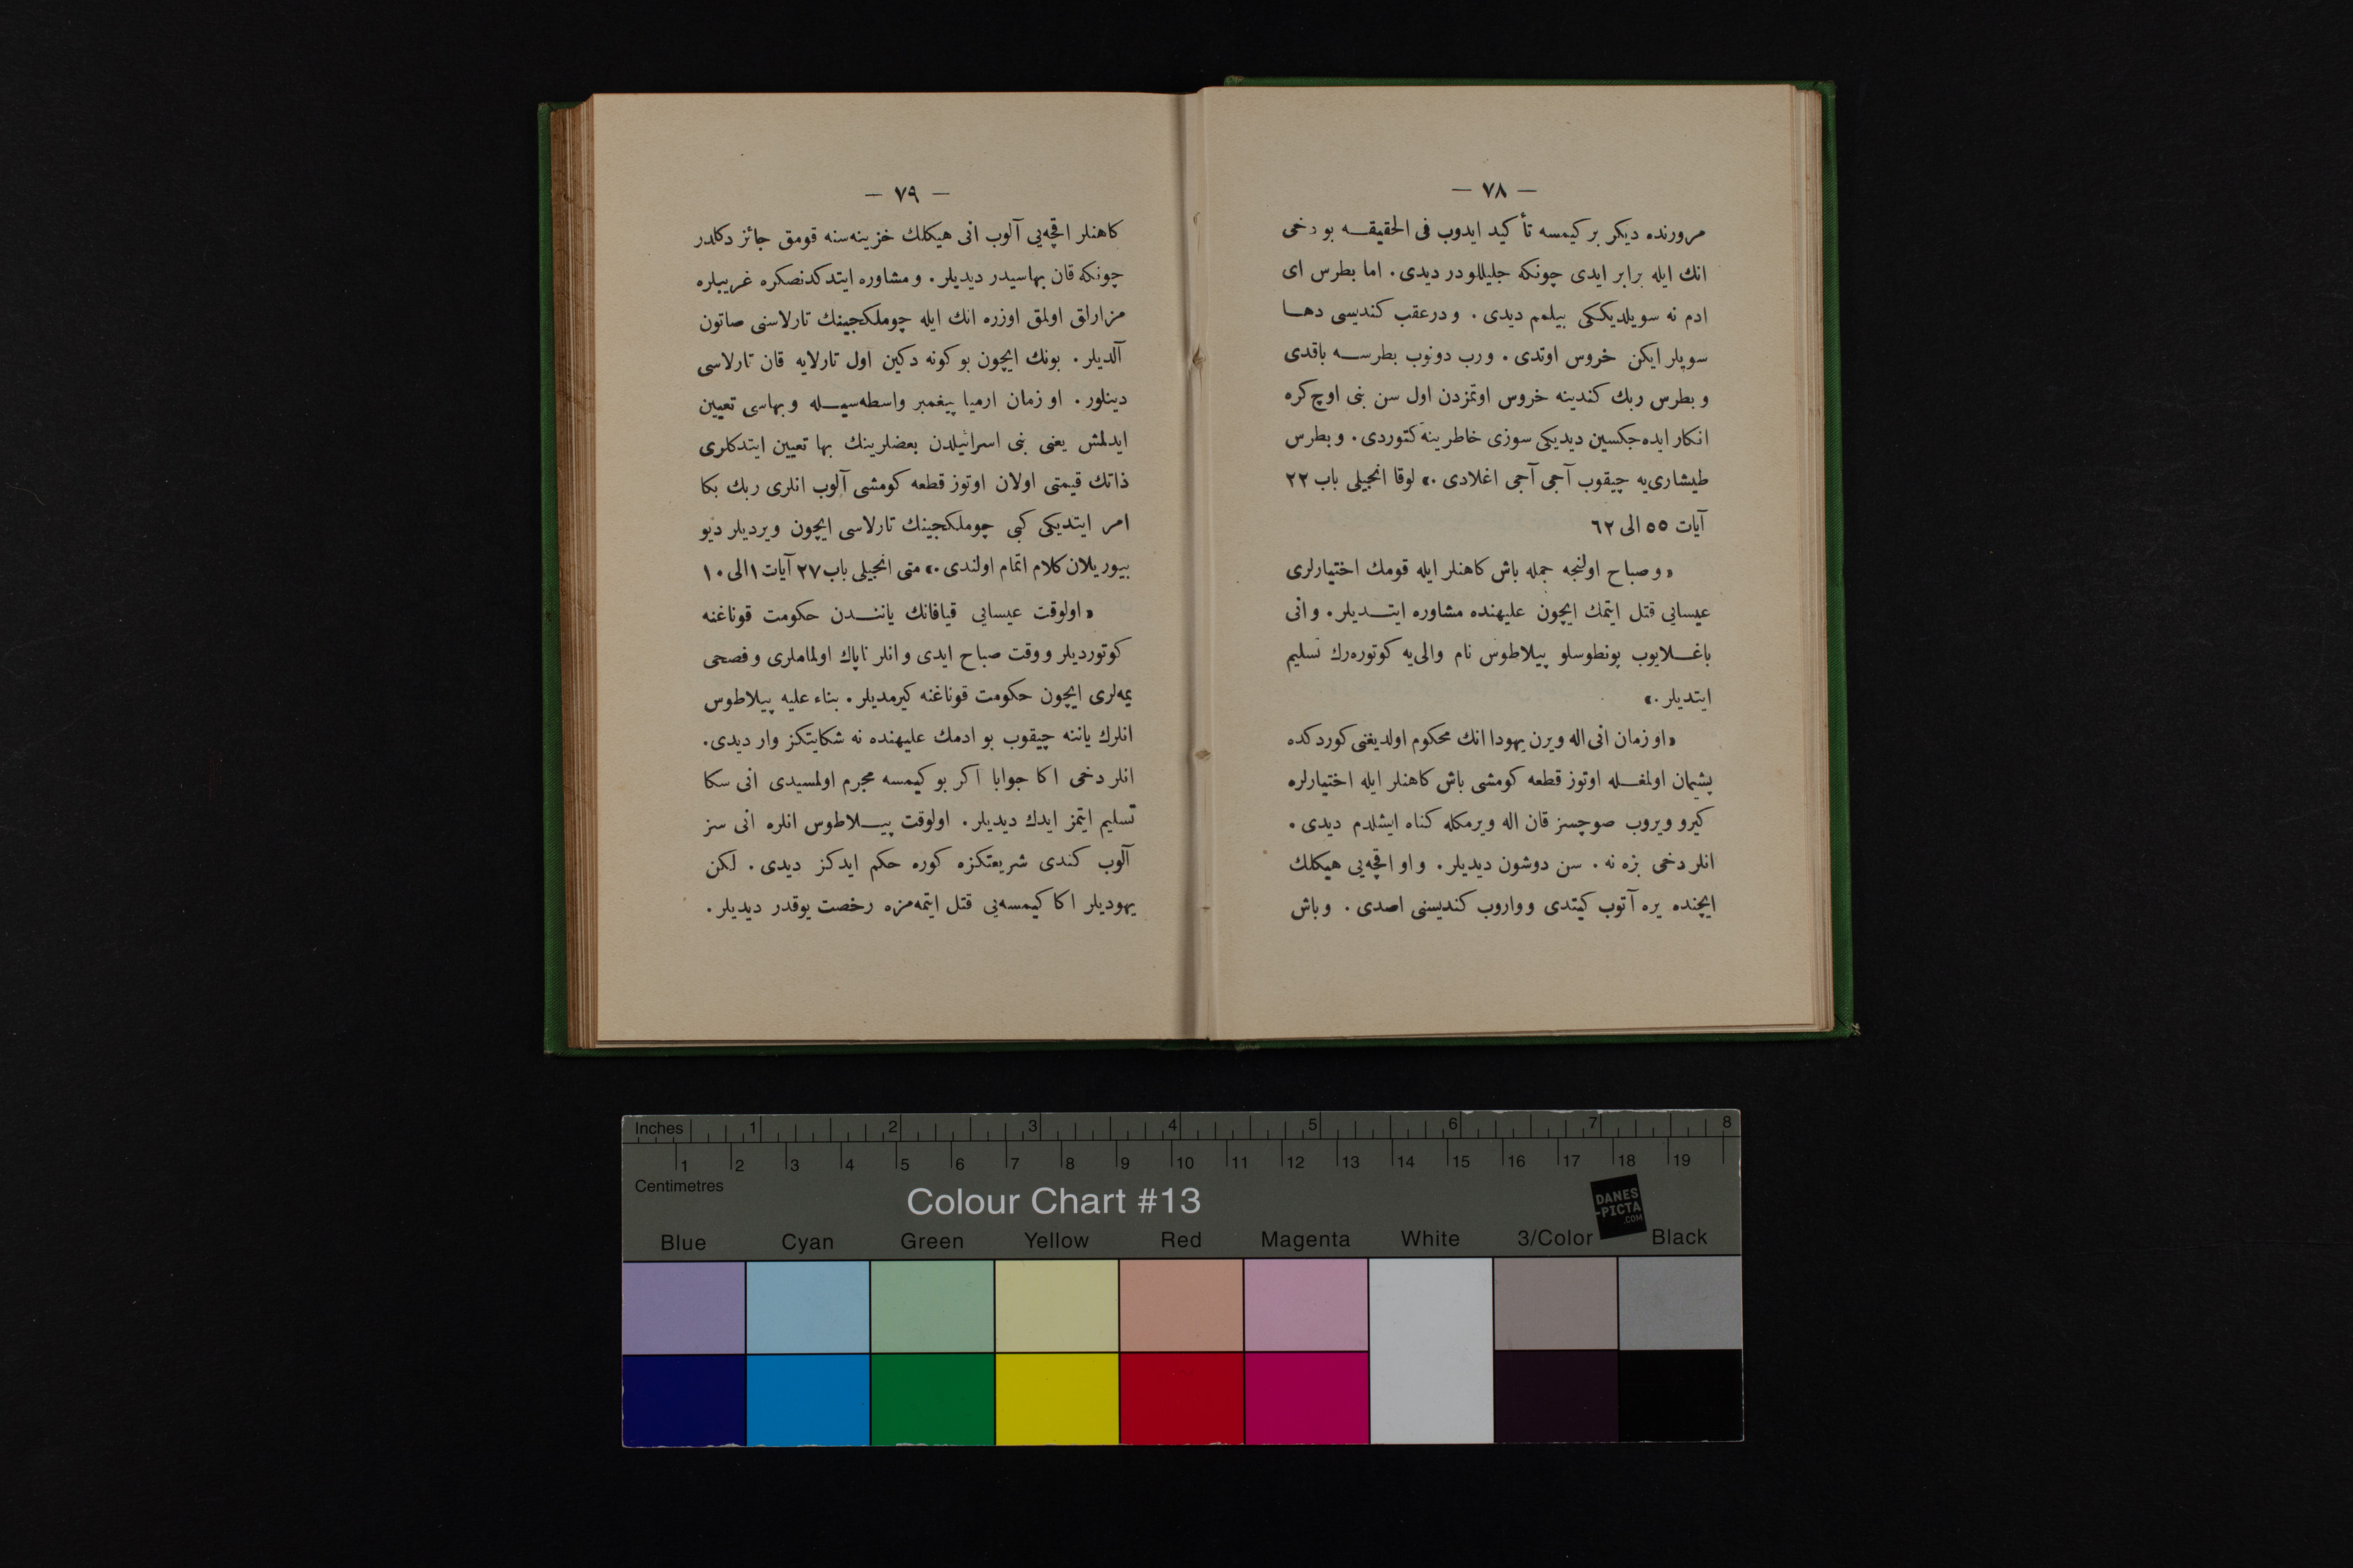 — ٧٨ —
مرورنده ديكر بر كيمسه تأكيد ايدوب فى الحقيقـه بو دخى
انك ايله برابر ايدى چونكه جليللودر ديدى. اما بطرس اى
ادم نه سويلديككى بيلمم ديدى. ودرعقب كنديسى دهـا
سويلر ايكن خروس اوتدى. ورب دونوب بطرسـه باقدى
و بطرس ربك كندينه خروس اوتمزدن اول سن بنى اوچ كره
انكار ايده‌جكسين ديديكى سوزى خاطرينه كتوردى. و بطرس
طيشارى‌يه چيقوب آجى آجى اغلادى.» لوقا انجيلى باب ٢٢
آيات ٥٥ الى ٦٢
«وصباح اولنجه جمله باش كاهنلر ايله قومك اختيارلرى
عيسايى قتل ايتمك ايچون عليهنده مشاوره ايتـديلر. وانى
باغـلايوب پونطوسلو پيلاطوس نام والى‌يه كوتوره‌رك تسليم
ايتديلر.»
«او زمان انى اله ويرن يهودا انك محكوم اولديغنى كوردكده
پشيمان اولمغـله اوتوز قطعه كومشى باش كاهنلر ايله اختيارلره
كيرو ويروب صوچسز قان اله ويرمكله كناه ايشلدم ديدى.
انلر دخى بزه نه. سن دوشون ديديلر. و او اقچه‌يى هيكلك
ايچنده يره آتوب كيتدى و واروب كنديسنى اصدى. وباش
— ٧٩ —
كاهنلر اقچه‌يى آلوب انى هيكلك خزينه‌سنه قومق جائز دكلدر
چونكه قان بهاسيدر ديديلر. و مشاوره ايتدكدنصكره غريبلره
مزارلق اولمق اوزره انك ايله چوملكجينك تارلاسنى صاتون
آلديلر. بونك ايچون بو كونه دكين اول تارلايه قان تارلاسى
دينلور. او زمان ارميا پيغمبر واسطه‌سيـله وبهاسى تعيين
ايدلمش يعنى بنى اسرائيلدن بعضلرينك بها تعيين ايتدكلرى
ذاتك قيمتى اولان اوتوز قطعه كومشى آلوب انلرى ربك بكا
امر ايتديكى كبى چوملكجينك تارلاسى ايچون ويرديلر ديو
بيوريلان كلام اتمام اولندى.» متى انجيلى باب ٢٧ آيات ١ الى ١٠
«اولوقت عيسايى قيافانك ياننـدن حكومت قوناغنه
كوتورديلر و وقت صباح ايدى وانلر ناپاك اولماملرى وفصحى
يمه‌لرى ايچون حكومت قوناغنه كيرمديلر. بناء عليه پيلاطوس
انلرك ياننه چيقوب بو ادمك عليهنده نه شكايتكز وار ديدى.
انلر دخى اكا جوابا اكر بو كيمسه مجرم اولمسيدى انى سكا
تسليم ايتمز ايدك ديديلر. اولوقت پيـلاطوس انلره انى سز
آلوب كندى شريعتكزه كوره حكم ايدكز ديدى. لكن
يهوديلر اكا كيمسه‌يى قتل ايتمه‌مزه رخصت يوقدر ديديلر.
Inches 1 2 3 4 5 6 7 8
1 2 3 4 5 6 7 8 9 10 11 12 13 14 15 16 17 18 19
Centimetres
Colour Chart #13
DANES
-PICTA
.COM
Blue Cyan Green Yellow Red Magenta White 3/Color Black